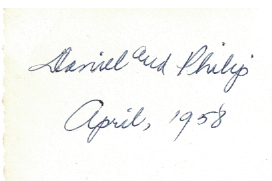 Daniel and Philip
April, 1958